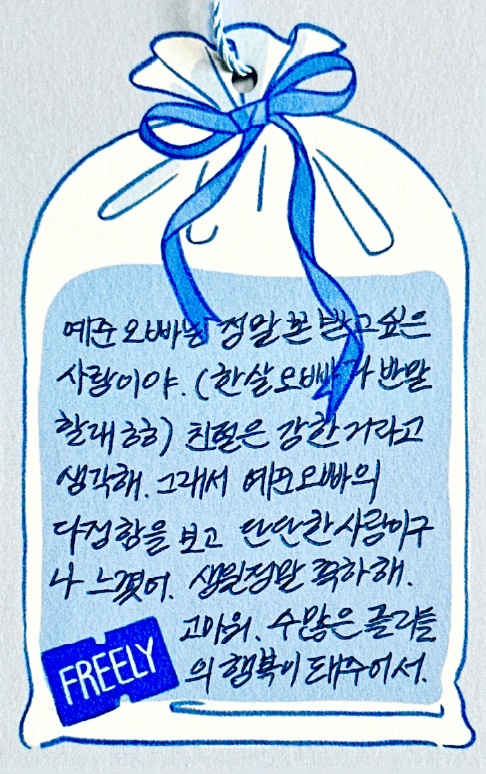 예준오빠는 정말 본받고싶은
사람이야. (한살오빠가 반말
할래 ㅎㅎ) 친절은 강한거라고
생각해. 그래서 예준오빠의
다정함을 보고 단단한사람이구
나 느꼈어. 생일정말 축하해.
고마워. 수많은 플리들
의 행복이 돼주어서.
FREELY